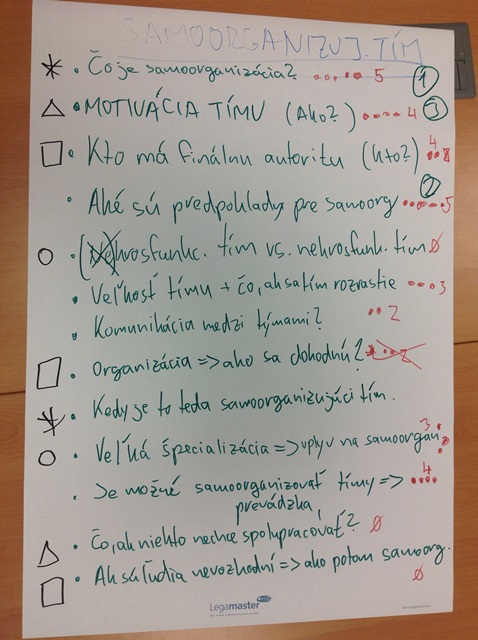 SAMOORGANIZUJ. TÍM
Čo je samoorganizácia? 5 1
MOTIVÁCIA TÍMU (Ako?) 4 3
Kto má finálnu autoritu (kto?) 4
Aké sú predpoklady pre samoorg 5 2
krosfunkc. tím vs. nekrosfunk. tím 0
Veľkosť tímu + čo, ak sa tím rozrastie 3
Komunikácia medzi týmami? 2
Organizácia => ako sa dohodnú?
Kedy je to teda samoorganizujúci tím.
Veľká špecializácia => vplyv na samoorgan. 3
Je možné samoorganizovať tímy => 4
prevádzka,
Čo, ak niekto nechce spolupracovať? 0
Ak sú ľudia nerozhodní => ako potom samoorg. 0
Legamaster